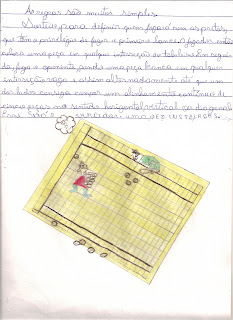 As regras são muitos simples.
Sorteio, para definir quem jogará com as pretas,
que têm o privilégio de fazer o primeiro lance. O jogador então
coloca uma peça em qualquer intersecção do tabuleiro. Em seguida
joga o oponente, pondo uma peça branca em qualquer
intersecção vaga e assim alternadamente até que um
dos lados consiga compor um alinhamento contínuo de
cinco peças no sentido horizontal, vertical ou diagonal.
não uma vez